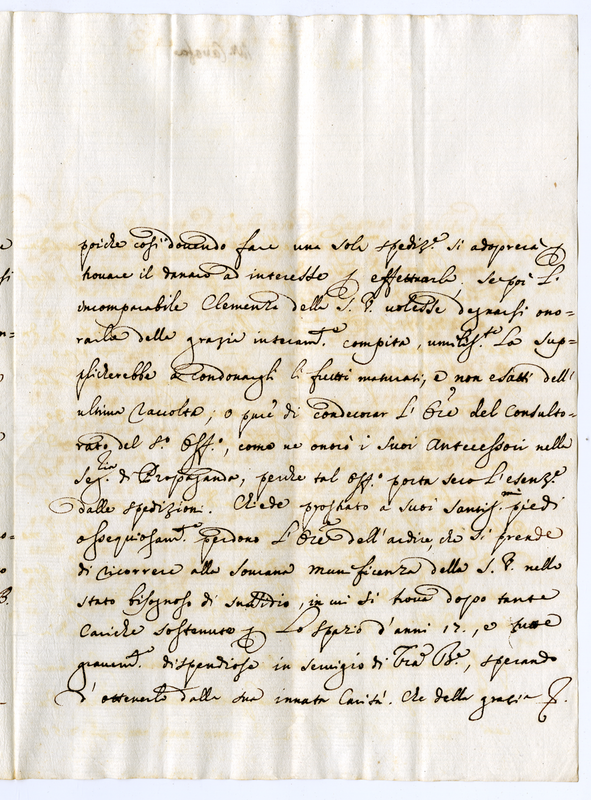 poiche così dovendo fare una sola spediz.e si adoprerà
trovare il danaro ad interesse p effettuarla. Se poi l'
incomparabile Clemenza della S. V. volesse degnarsi ono=
rarlo della grazia interam.e compita, umiliss.te La sup=
plicherebbe a condonargli li frutti maturati, e non esatti dell'
ultima raccolta; o pure di condecorar l' Ore del Consulto=
rato del S.o Off.o, come ne onorò i suoi Antecessori nella
Seg.ria di Propaganda, perche tal Off.o porta seco l'esenz.e
dalle spedizioni. Chiede prostrato a suoi Santiss.mi piedi
ossequiosam.e perdono l' Ore dell'ardire, che si prende
di ricorrere alla sovrana munificenza della S. V. nello
stato bisognoso di sussidio, in cui si trova dopo tante
Cariche sostenute p Lo spazio d'anni 17., e tutte
gravem.e dispendiose in servigio di Vra B.e, sperando
d' ottenerlo dalla sua innata Carità. Che della grazia &.